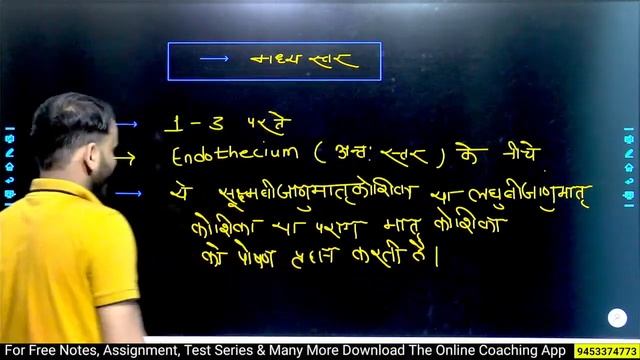 → मध्य स्तर
→ 1 - 3 परते
→ Endothecium ( अन्तः स्तर ) के नीचे
→ ये सूक्ष्मबीजाणुमातृकोशिका या लघुबीजाणुमातृ
कोशिका या पराग मातृ कोशिका
को पोषण प्रदान करती है।
For Free Notes, Assignment, Test Series & Many More Download The Online Coaching App 9453374773